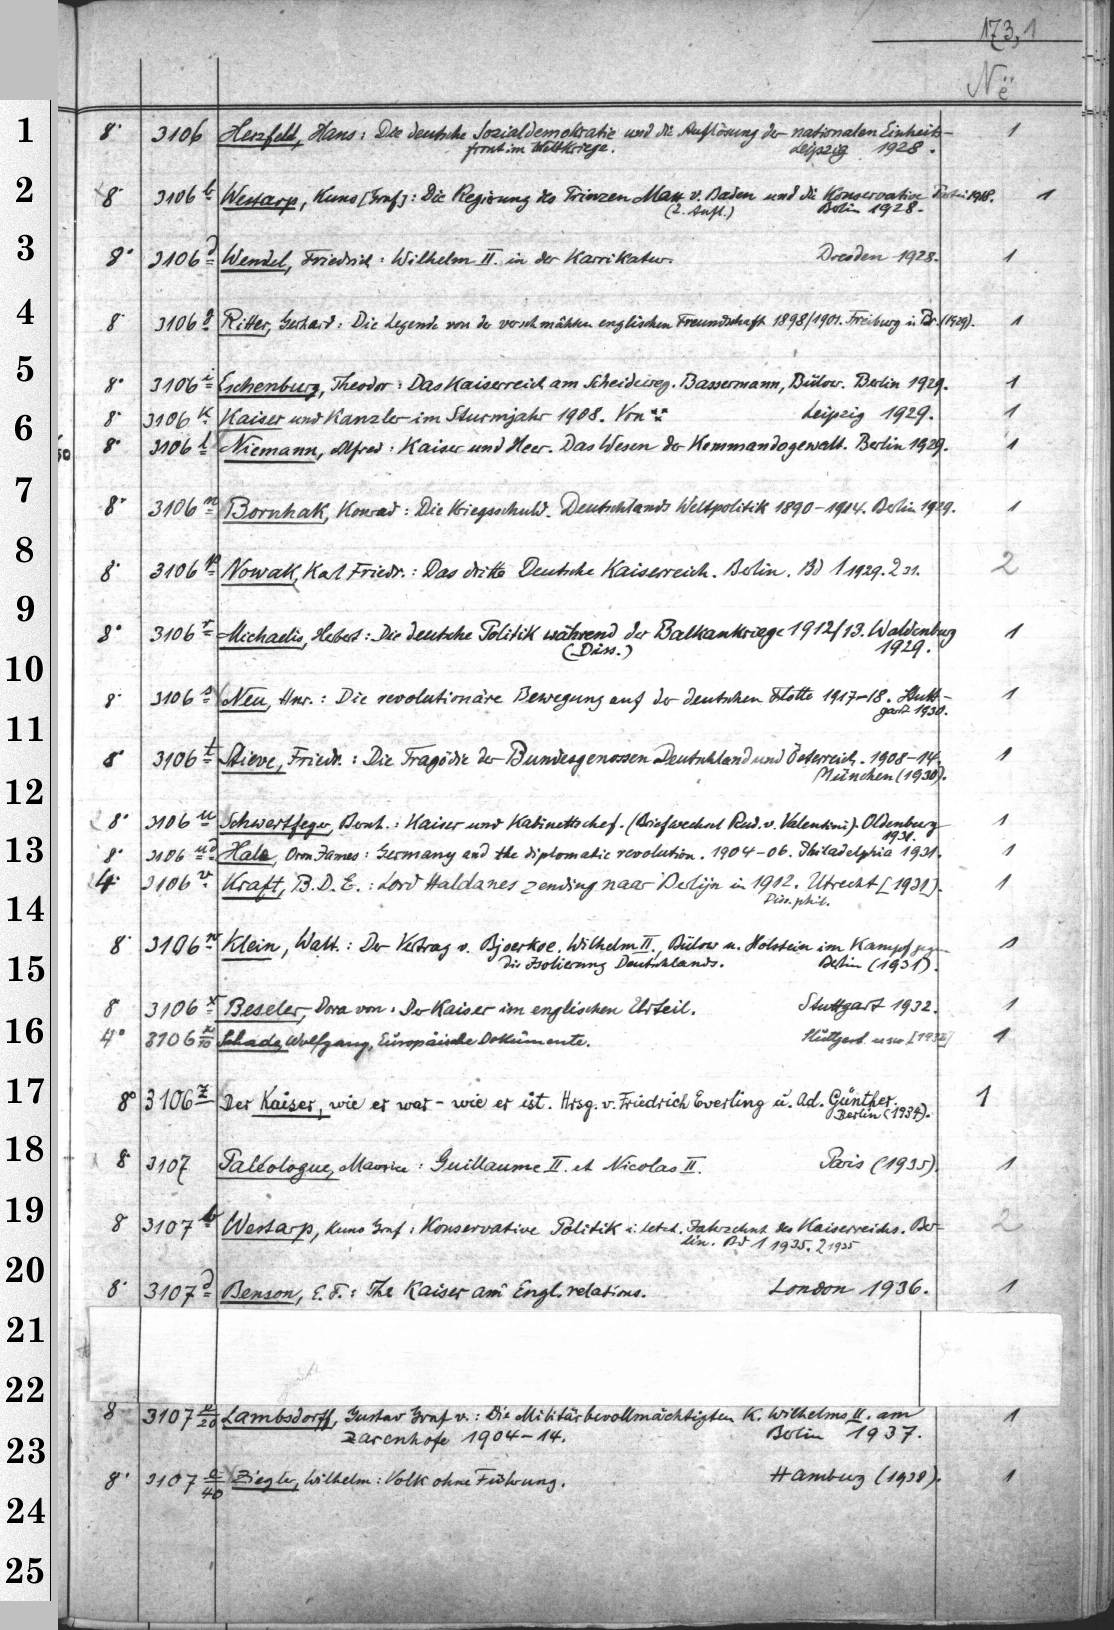 173,1
Në
1
8° 3106 Herzfeld, Hans: Die deutsche Sozialdemokratie und die Auflösung der nationalen Einheits- 1
front im Weltkriege. Leipzig 1928.
2
8° 3106 b Westarp, Kuno [Graf]: Die Regierung des Prinzen Max v. Baden und die Konservative Partei 1918. 1
(2. Aufl.) Berlin 1928.
3
8° 3106 d Wendel, Friedrich: Wilhelm II. in der Karrikatur. Dresden 1928. 1
4
8° 3106 g Ritter, Gerhard: Die Legende von der verschmähten englischen Freundschaft 1898/1901. Freiburg i. Br. (1929). 1
5
8° 3106 i Eschenburg, Theodor: Das Kaiserreich am Scheideweg. Bassermann, Bülow. Berlin 1929. 1
6
8° 3106 k Kaiser und Kanzler im Sturmjahr 1908. Von ** Leipzig 1929. 1
8° 3106 l Niemann, Alfred: Kaiser und Heer. Das Wesen der Kommandogewalt. Berlin 1929. 1
7
8° 3106 n Bornhak, Konrad: Die Kriegsschuld. Deutschlands Weltpolitik 1890-1914. Berlin 1929. 1
8
8° 3106 p Nowak, Karl Friedr.: Das dritte Deutsche Kaiserreich. Berlin. Bd 1 1929. 2 31. 2
9
8° 3106 r Michaelis, Herbert: Die deutsche Politik während der Balkankriege 1912/13. Waldenburg 1
(Diss.) 1929.
10
8° 3106 s Neu, Hnr.: Die revolutionäre Bewegung auf der deutschen Flotte 1917-18. Stutt- 1
gart 1930.
11
8° 3106 t Stieve, Friedr.: Die Tragödie der Bundesgenossen Deutschland und Österreich. 1908-14. 1
München (1930).
12
8° 3106 u Schwertfeger, Bernh.: Kaiser und Kabinettschef. (Briefwechsel Rud. v. Valentini). Oldenburg 1
1931.
13
8° 3106 ud Hale, Oron James: Germany and the diplomatic revolution. 1904-06. Philadelphia 1931. 1
4° 3106 v Kraft, B.D.E.: Lord Haldanes zending naar Berlijn in 1912. Utrecht [1931]. 1
Diss. phil.
14
8° 3106 w Klein, Walt.: Der Vertrag v. Bjoerkoe. Wilhelm II., Bülow u. Holstein im Kampf gegen 1
die Isolierung Deutschlands. Berlin (1931).
15
8 3106 x Beseler, Dora von: Der Kaiser im englischen Urteil. Stuttgart 1932. 1
16
4° 3106 x/10 Schade, Wolfgang, Europäische Dokumente. Stuttgart usw [1932] 1
17
8° 3106 z Der Kaiser, wie er war - wie er ist. Hrsg. v. Friedrich Everling u. Ad. Günther. 1
Berlin (1934).
18
8 3107 Paléologue, Maurice: Guillaume II. et Nicolas II. Paris (1935). 1
19
8 3107 b Westarp, Kuno Graf: Konservative Politik i. letzt. Jahrzehnt des Kaiserreichs. Ber- 2
lin. Bd 1 1935. 2 1935
20
8° 3107 d Benson, E. F.: The Kaiser and Engl. relations. London 1936. 1
21
22
8 3107 20 Lambsdorff, Gustav Graf v.: Die Militärbevollmächtigten K. Wilhelms II. am 1
Zarenhofe 1904-14. Berlin 1937.
23
8° 3107 e/40 Ziegler, Wilhelm: Volk ohne Führung. Hamburg (1938). 1
24
25